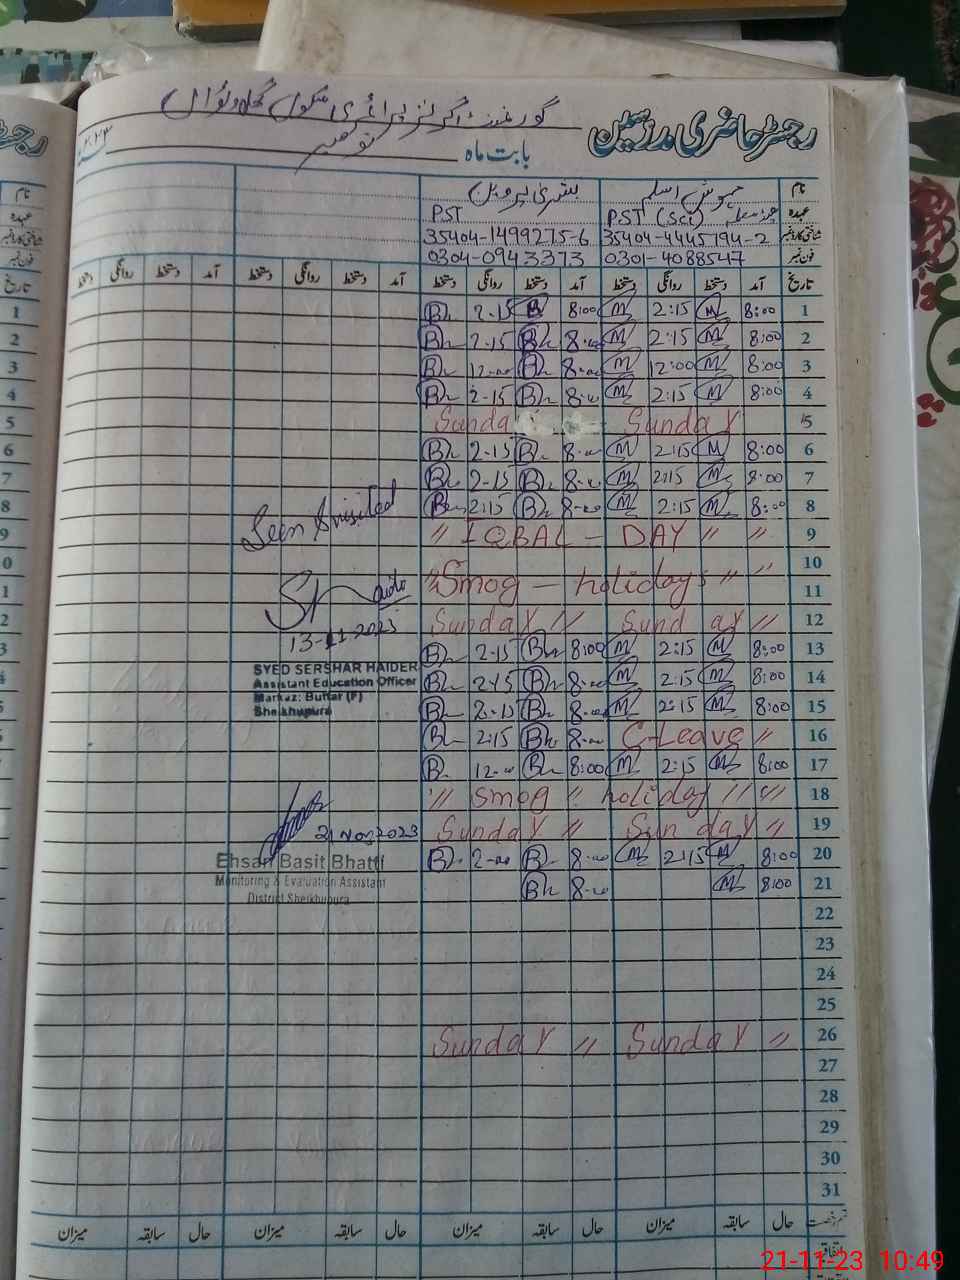 گورنمنٹ گرلز پرائمری سکول
رجسٹر حاضری مدرسین
بابت ماہ نومبر
نام مہوش اسلم بشریٰ پروین
عہدہ PST (Sci) PST
شناختی کارڈ نمبر 35404-4445794-2 35404-1499275-6
فون نمبر 0301-4088547 0304-0943373
تاریخ آمد دستخط روانگی دستخط آمد دستخط روانگی دستخط آمد دستخط روانگی دستخط آمد دستخط روانگی دستخط
1 8:00 M 2:15 M 8:00 2-15 Bu
2 8:00 M 2:15 M 8-00 Bu 2-15 Bu
3 8:00 M 12:00 M 8-00 Bu 12-00 Bu
4 8:00 M 2:15 M 8-00 Bu 2-15 Bu
5 Sunday Sunda
6 8:00 M 2:15 M 8-00 Bu 2-15 Bu
7 8:00 M 2:15 M 8-00 Bu 2-15 Bu
8 8:00 M 2:15 M 8-00 Bu 2:15 Bu
9 " IQBAL - DAY " "
10
11 "Smog - holidays " "
12 Sunday " Sunday "
13 8:00 M 2:15 M 8:00 Bu 2-15 Bu
14 8:00 M 2:15 M 8-00 Bu 2-15 Bu
15 8:00 M 2:15 M 8-00 Bu 2-15 Bu
16 C-Leave " 8-00 Bu 2:15 Bu
17 8:00 M 2:15 M 8:00 Bu 12-00 B
18 " Smog " holiday " "
19 Sunday " Sunday "
20 8:00 M 2:15 M 8-00 B 2-00 B
21 8:00 M 8-00 Bu
22
23
24
25
26 Sunday " Sunday "
27
28
29
30
31
Seen & visited
13-11-2023
SYED SERSHAR HAIDER
Assistant Education Officer
Markaz: Buttar (F)
Sheikhupura
21 Nov 2023
Ehsan Basit Bhatti
Monitoring & Evaluation Assistant
District Sheikhupura
حال سابقہ میزان حال سابقہ میزان حال سابقہ میزان حال سابقہ میزان
21-11-23 10:49